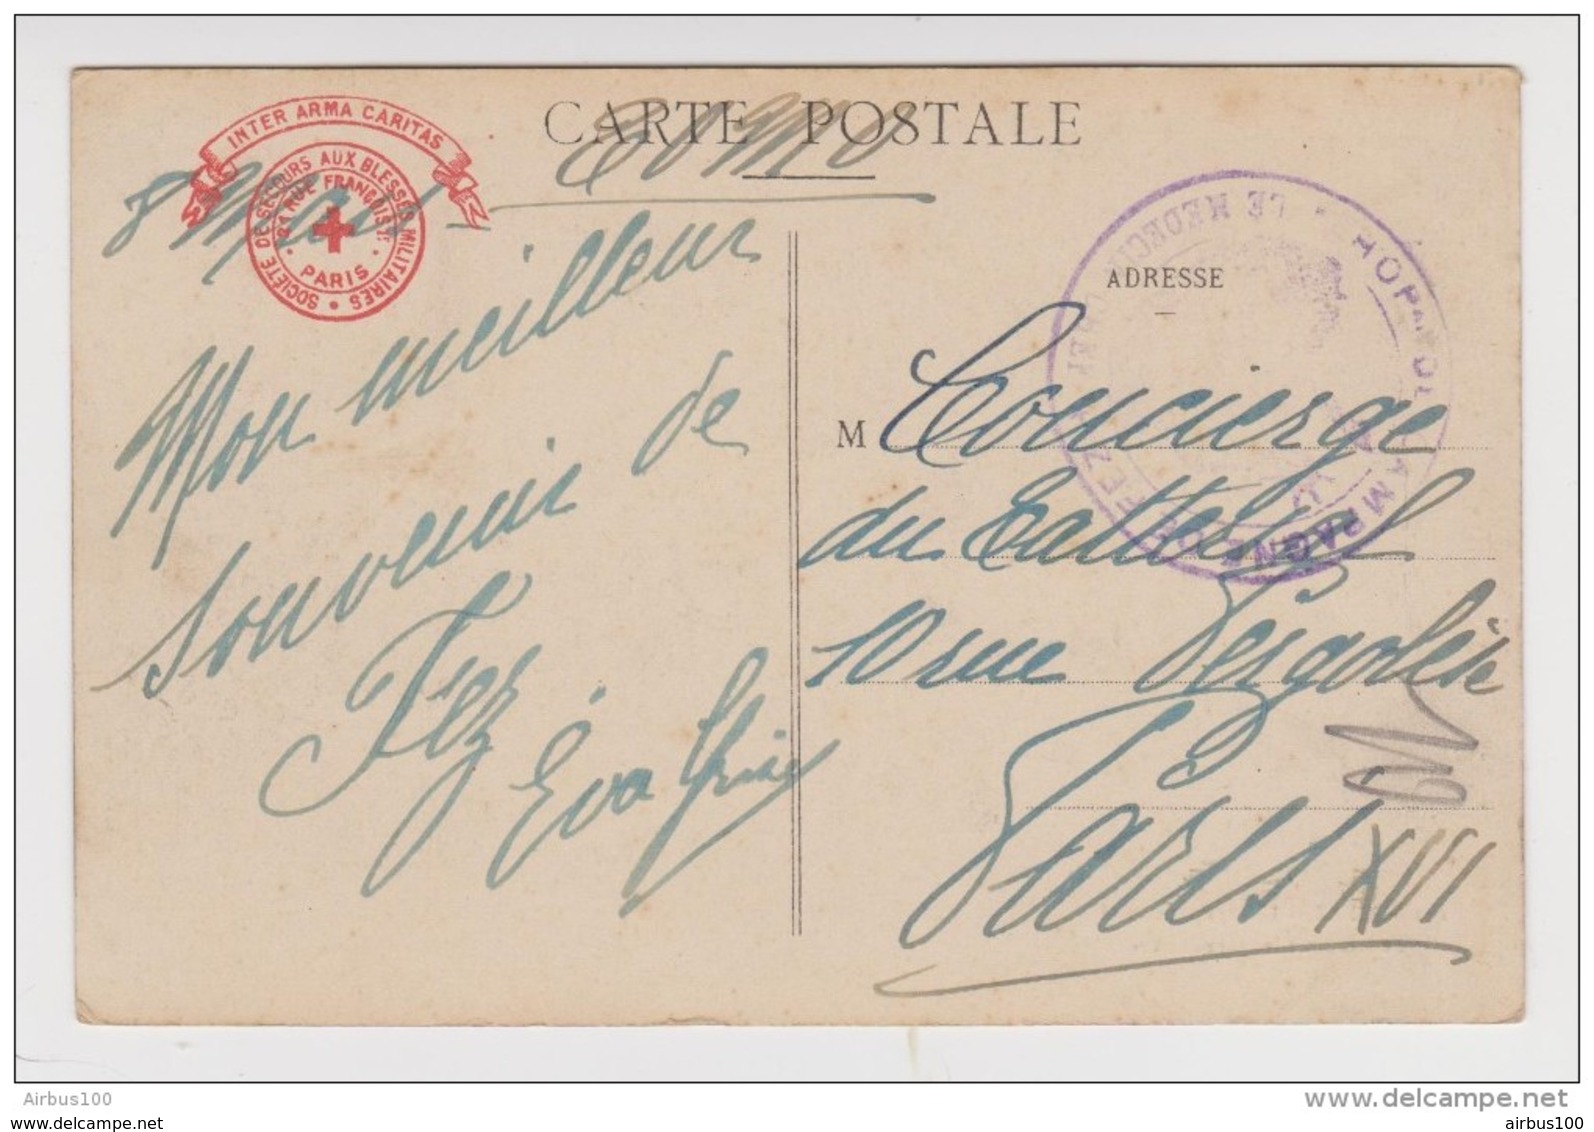 CARTE POSTALE
INTER ARMA CARITAS
SOCIÉTÉ DE SECOURS AUX BLESSÉS MILITAIRES
21 RUE FRANÇOIS 1er
PARIS
8 Mai
Mon meilleur
souvenir de
Fez
Eva
HOPITAL DE CAMPAGNE DE FEZ
LE MEDECIN CHEF
ADRESSE
M Concierge
du
10 rue Pergolèse
Paris XVI
Airbus100
www.delcampe.net
delcampe.net
airbus100